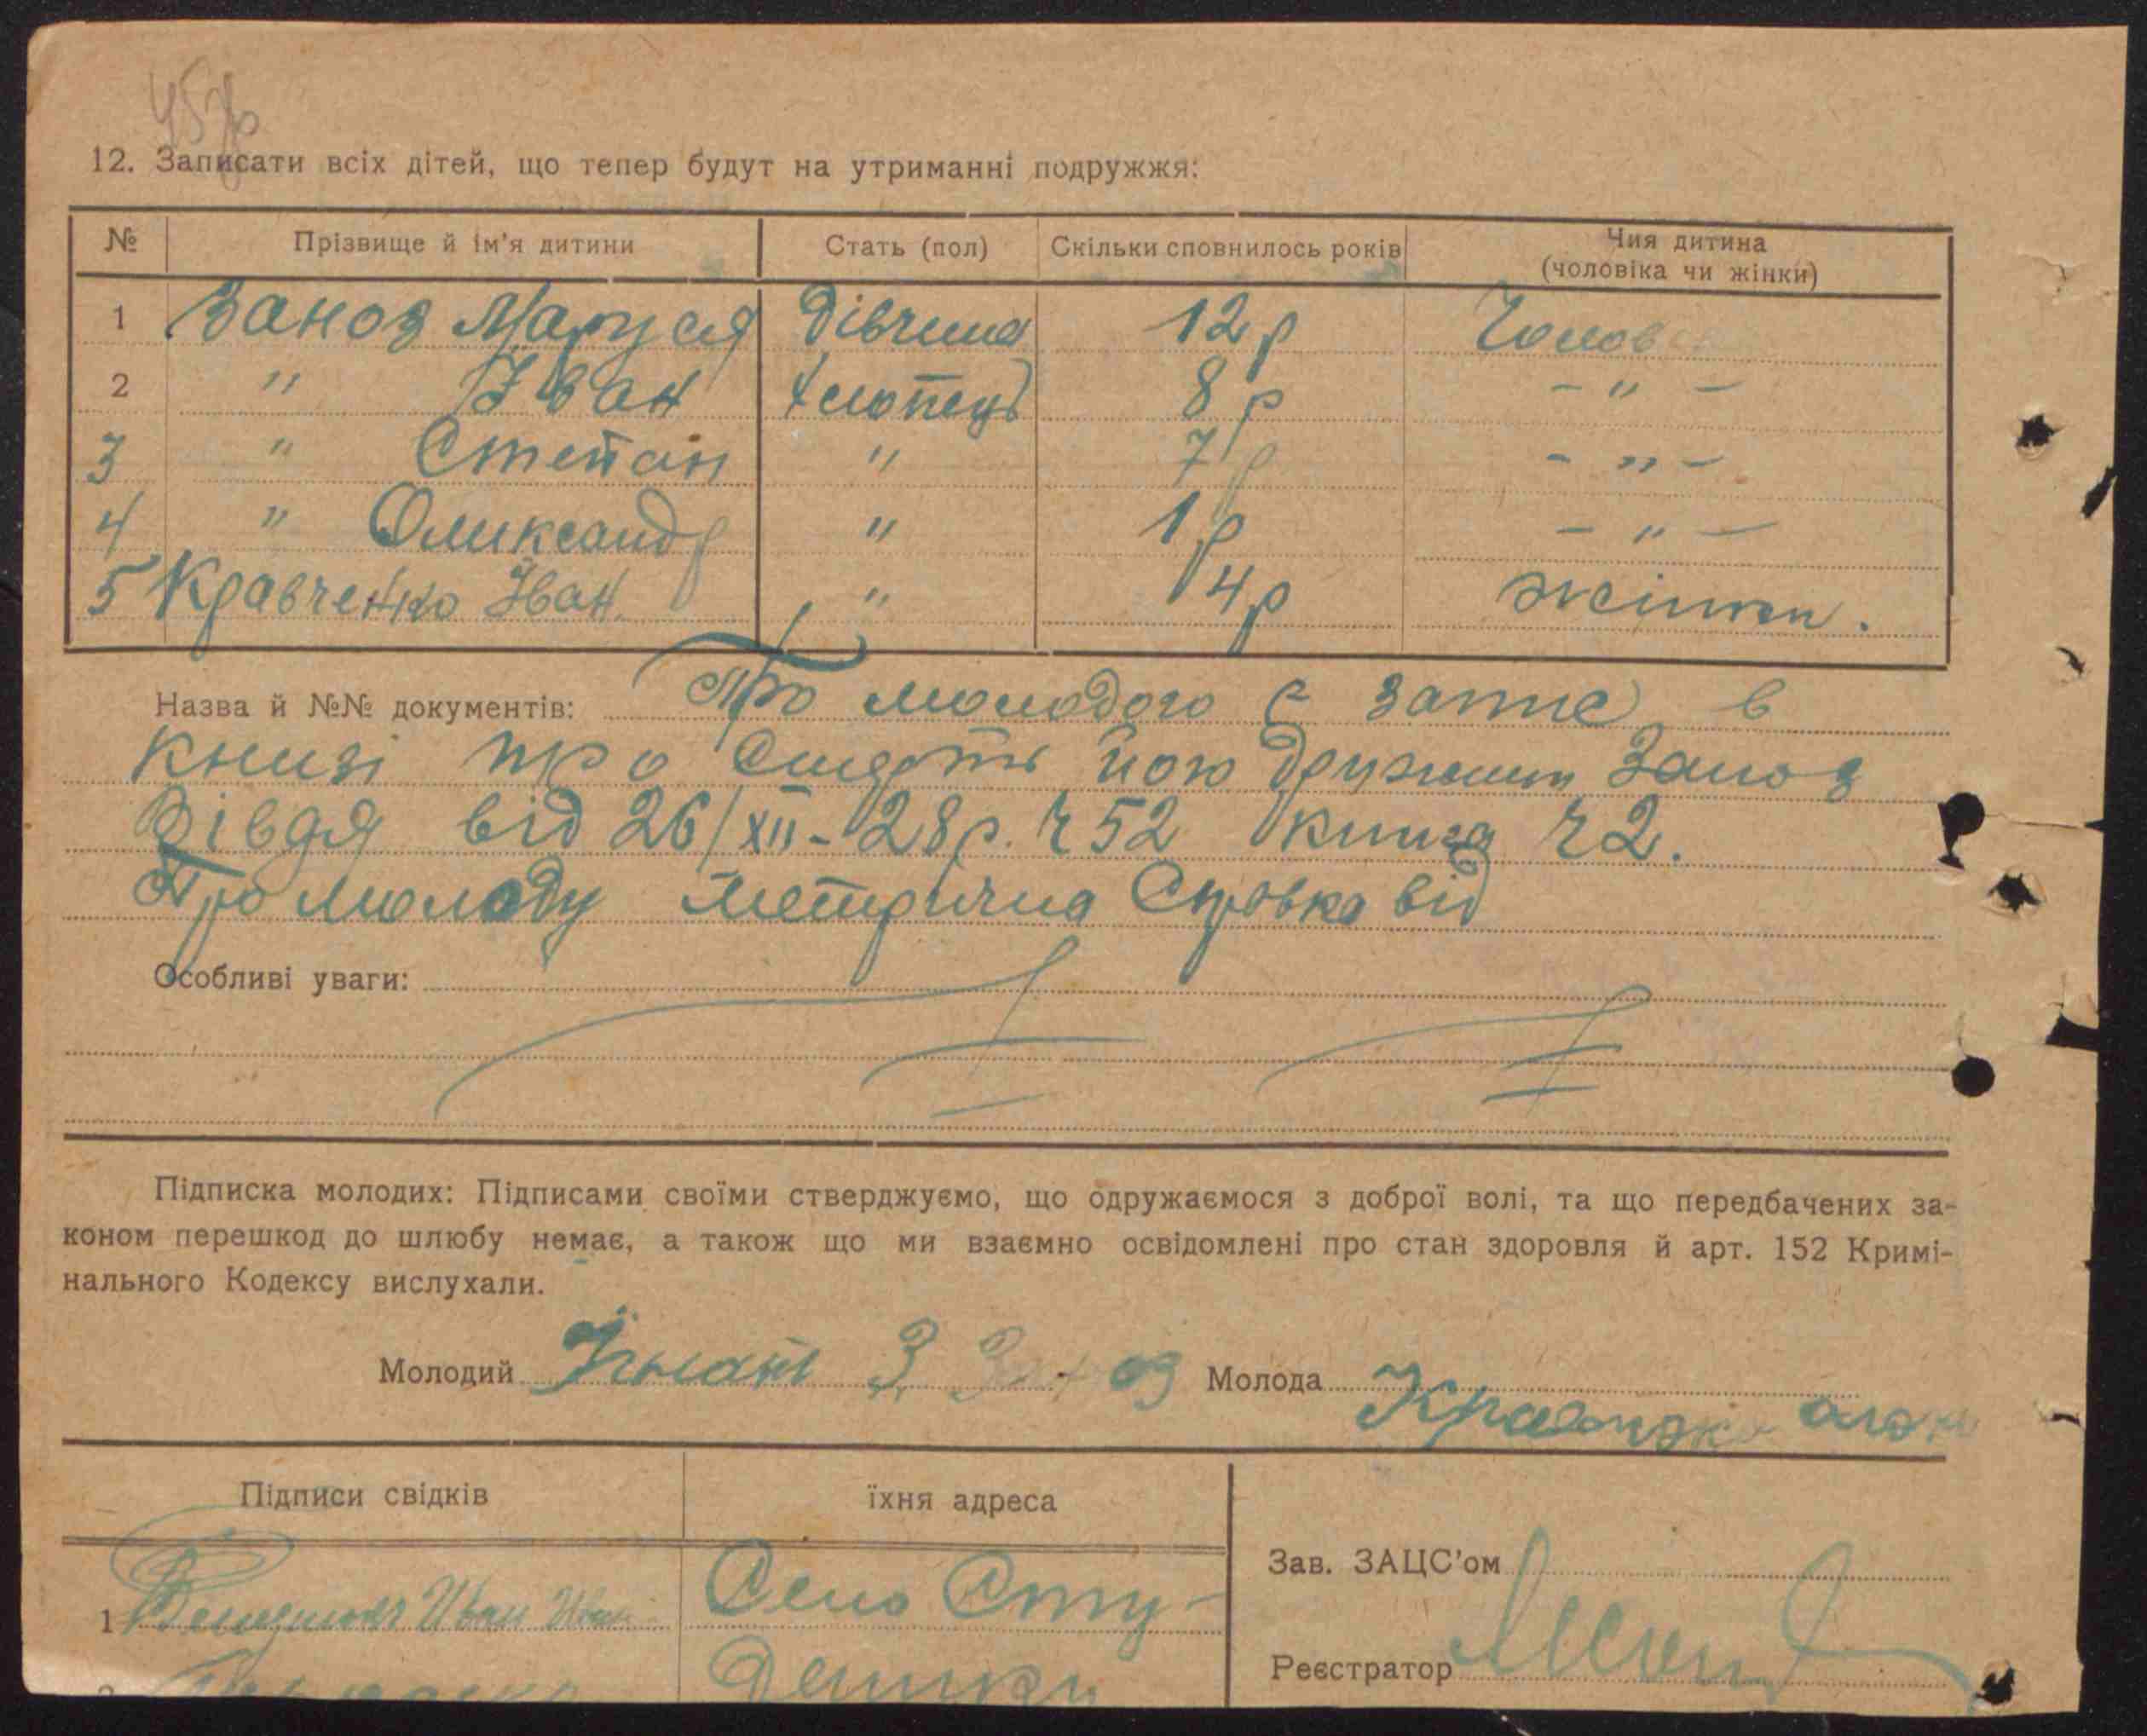 12. Записати всіх дітей, що тепер будут на утриманні подружжя:
№ Прізвище й ім'я дитини Стать (пол) Скільки сповнилось років Чия дитина (чоловіка чи жінки)
1 Заноз Маруся дівчина 12 р Чолов
2 " Іван хлопець 8 р - " -
3 " Степан " 7 р - " -
4 " Олександр " 1 р - " -
5 Кравченко Іван " 4 р жінки.
Назва й №№ документів: Про молодого є запис в
книзі про смерть його дружини Заноз
Вівдя від 26/XII-28р. Ч 52 книга Ч 2.
Про молоду метрична справка від
Особливі уваги:
Підписка молодих: Підписами своїми стверджуємо, що одружаємося з доброї волі, та що передбачених за-
коном перешкод до шлюбу немає, а також що ми взаємно освідомлені про стан здоровля й арт. 152 Кримі-
нального Кодексу вислухали.
Молодий Ігнат З Молода
Підписи свідків їхня адреса
Зав. ЗАЦС'ом
1 Иван Село Сту-
Реєстратор
денки